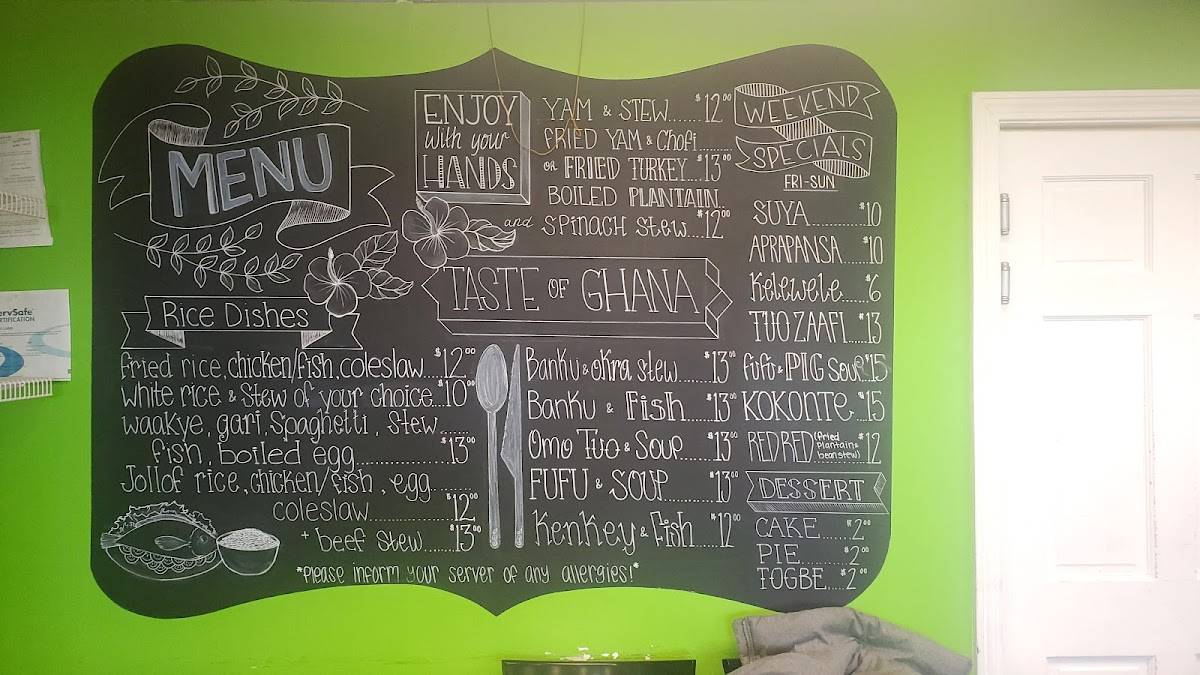 MENU
Rice Dishes
Fried rice, chicken/fish, coleslaw....$12.00
White rice & Stew of your choice...$10.00
Waakye, gari, Spaghetti, Stew......
fish, boiled egg..............$13.00
Jollof rice, chicken/fish, egg.......
coleslaw..............$12.00
+ beef stew........$13.00
*Please inform your server of any allergies!*
ENJOY
with your
HANDS
YAM & STEW.......$12.00
FRIED YAM & Chofi........
or FRIED TURKEY....$13.00
BOILED PLANTAIN..
and SPINACH STEW....$12.00
TASTE OF GHANA
Banku & Okra Stew.......$13.00
Banku & Fish......$13.00
Omo Tuo & Soup......$13.00
FUFU & SOUP...........$13.00
KenKey & Fish.....$12.00
WEEKEND
SPECIALS
FRI-SUN
SUYA...........$10
APRAPANSA....$10
Kelewele.....$6
TUO ZAAFI...$13
fufu & PIG Soup $15
KOKONTE...$15
RED RED (fried plantain & bean stew)..$12
DESSERT
CAKE......$2.00
PIE..........$2.00
TOGBE...$2.00
ervSafe
RTIFICATION